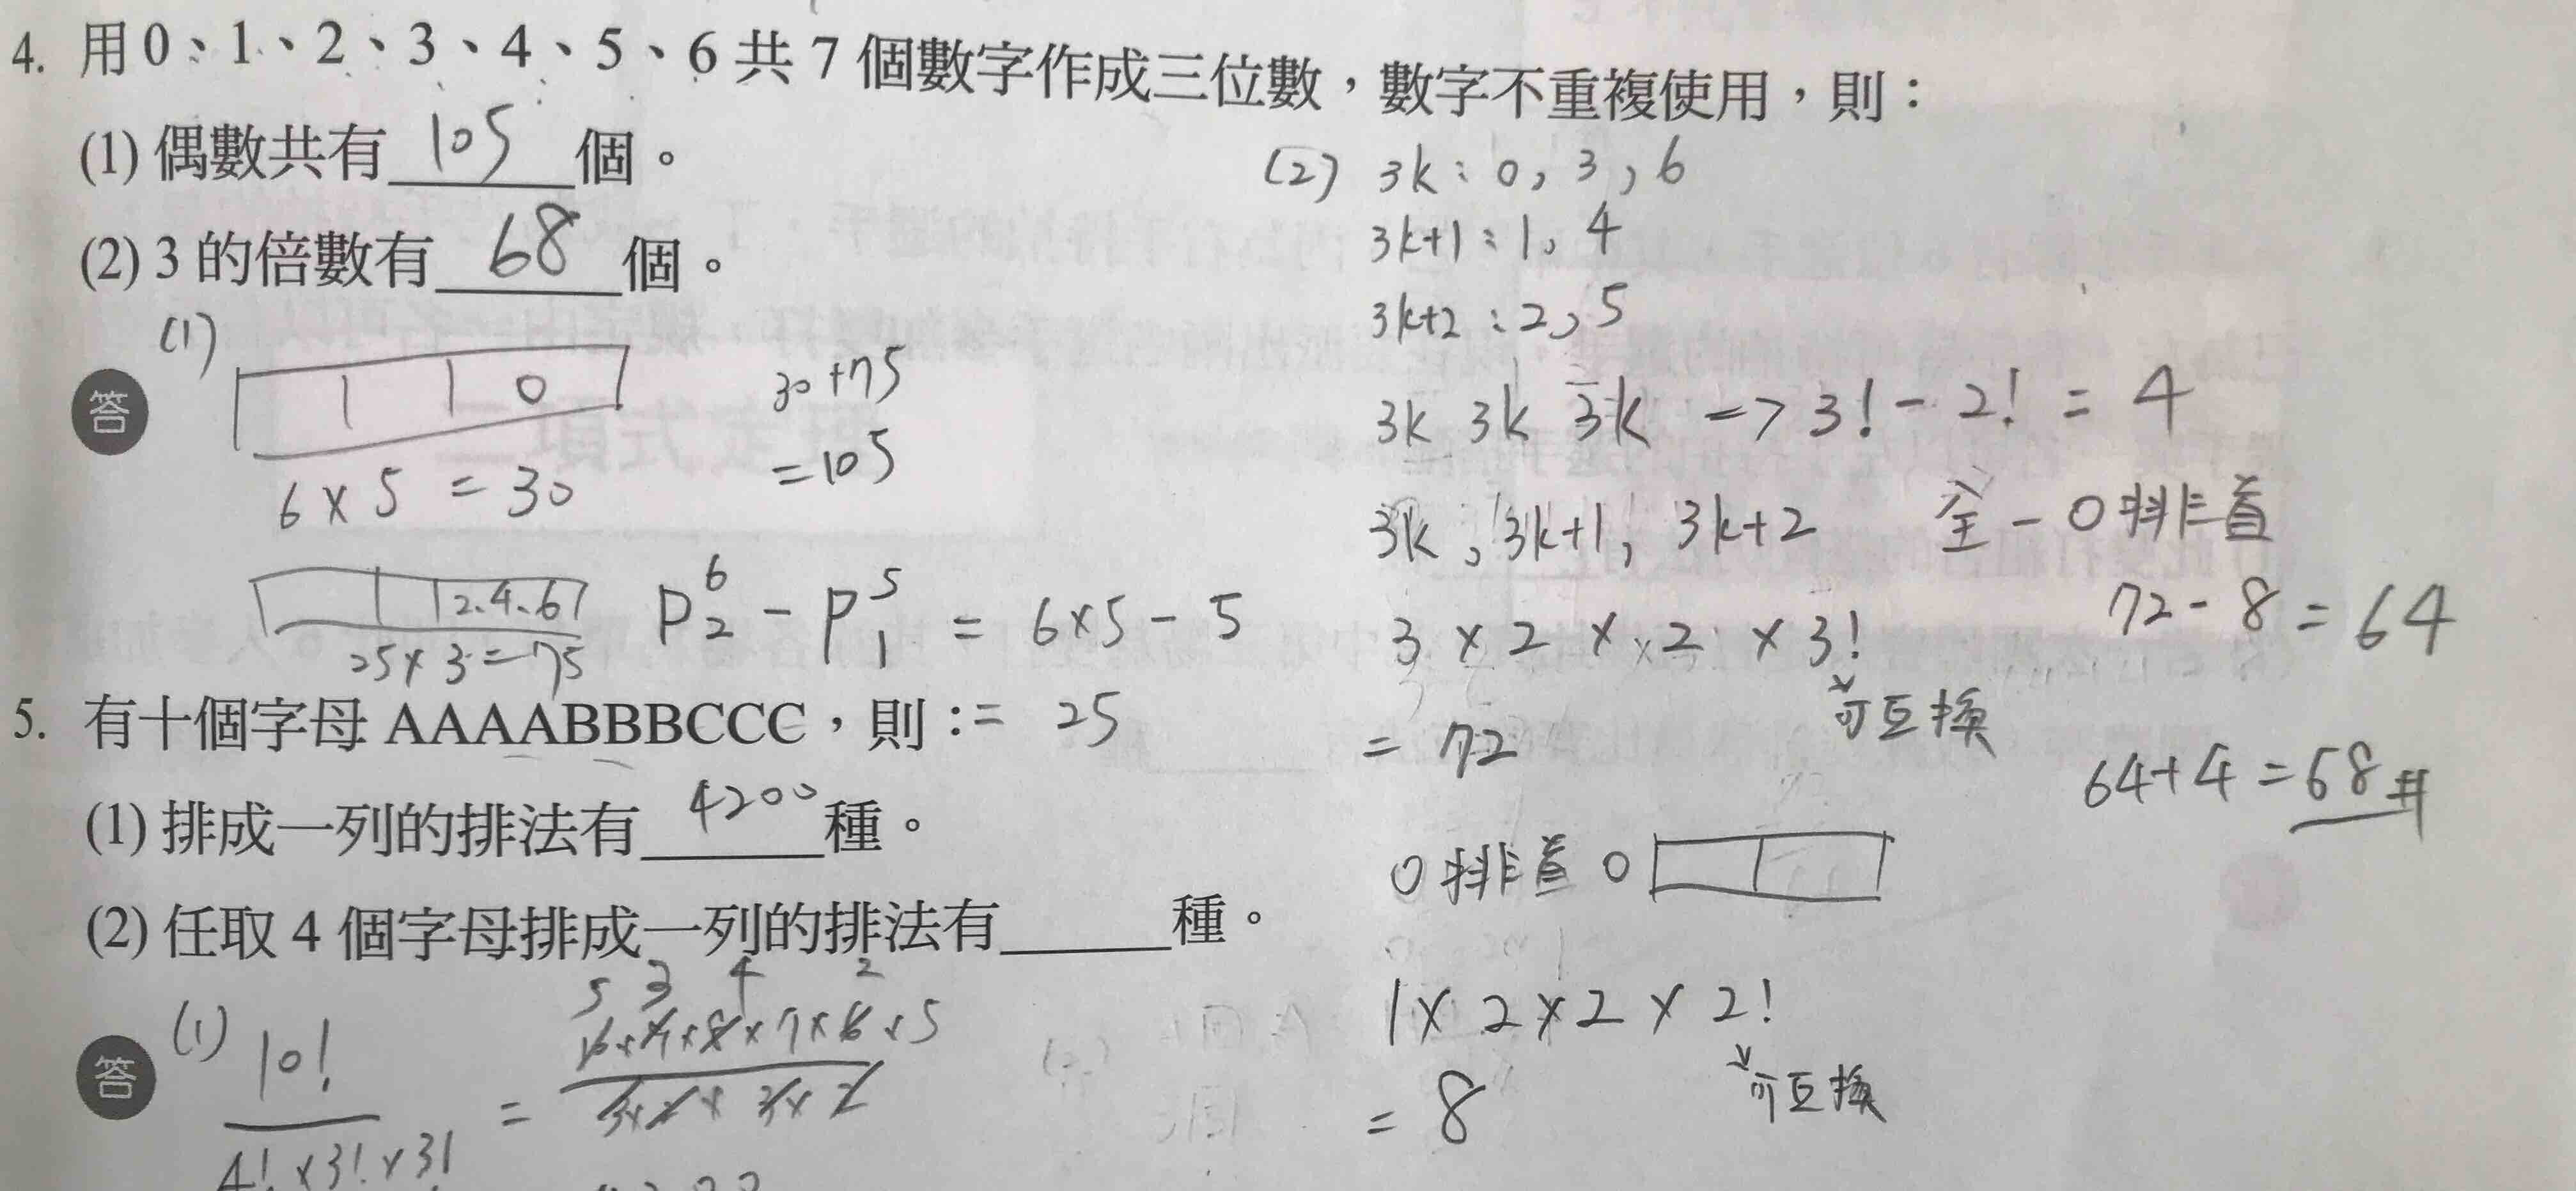 4. 用0、1、2、3、4、5、6共7個數字作成三位數，數字不重複使用，則：
(1) 偶數共有 105 個。
(2) 3的倍數有 68 個。
答 (1)
0
6 × 5 = 30
30+75
=105
2、4、6
25 × 3 = 75
P⁶₂ - P⁵₁ = 6×5 - 5
= 25
(2) 3k : 0, 3, 6
3k+1 : 1, 4
3k+2 : 2, 5
3k 3k 3k => 3! - 2! = 4
3k, 3k+1, 3k+2 全 - 0排首
3 × 2 × 2 × 3!
可互換
= 72
72 - 8 = 64
64+4 = 68
0排首 0
1 × 2 × 2 × 2!
可互換
= 8
5. 有十個字母AAAABBBCCC，則：
(1) 排成一列的排法有 4200 種。
(2) 任取4個字母排成一列的排法有______種。
答 (1)
10!
4! × 3! × 3!
=
5 3 4 2
10×9×8×7×6×5
3×2×3×2